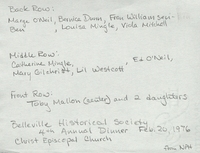 Back Row:
Marge O'Neil, Bernice Dunn, Fran Williamson-
Ben, Louise Mingle, Viola Mitchell
Middle Row:
Catherine Mingle, Ed O'Neil,
Mary Gilchrist, Lil Westcott
Front Row:
Toby Mallon (seated) and 2 daughters
Belleville Historical Society
4th Annual Dinner Feb 20, 1976
Christ Episcopal Church